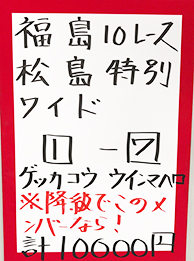 福島10レース
松島特別
ワイド
1-7
ゲッカコウ ウインマハロ
※降級でこのメ
ンバーなら!
計10000円